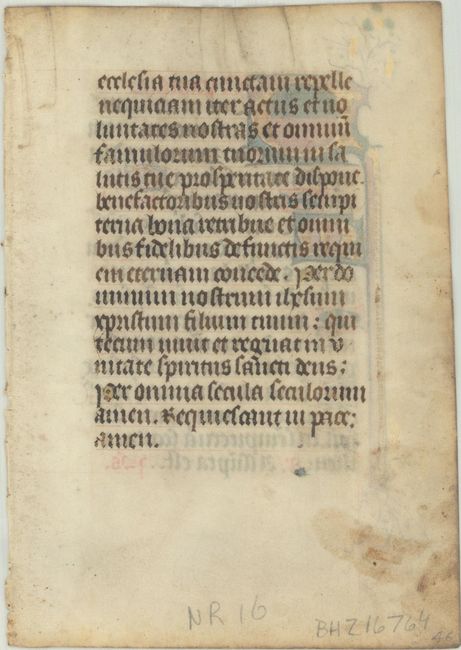 ecclesia tua cunctam repelle
nequiciam iter actus et uo
luntates nostras et omniũ
famulorum tuorum in sa
lutis tue prosperitate dispone.
benefactoribus nostris sempi
terna bona retribue et omni
bus fidelibus defunctis requi
em eternam concede. Per do
minum nostrum ihesum
xpristum filium tuum: qui
tecum uiuit et regnat in v
nitate spiritus sancti deus:
Per omnia secula seculorum
amen. Requiescant in pace:
amen.
NR 16
BHZ16764
46